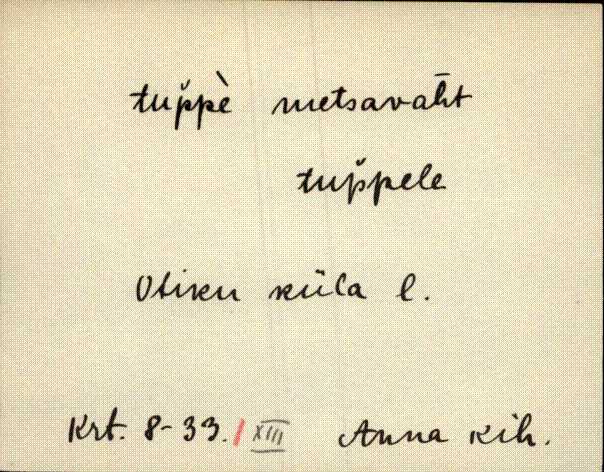 tup̆pè metsavāht
tup̆pele
Otiku küla l.
Krt. 8-33. / XIII Anna Kih.